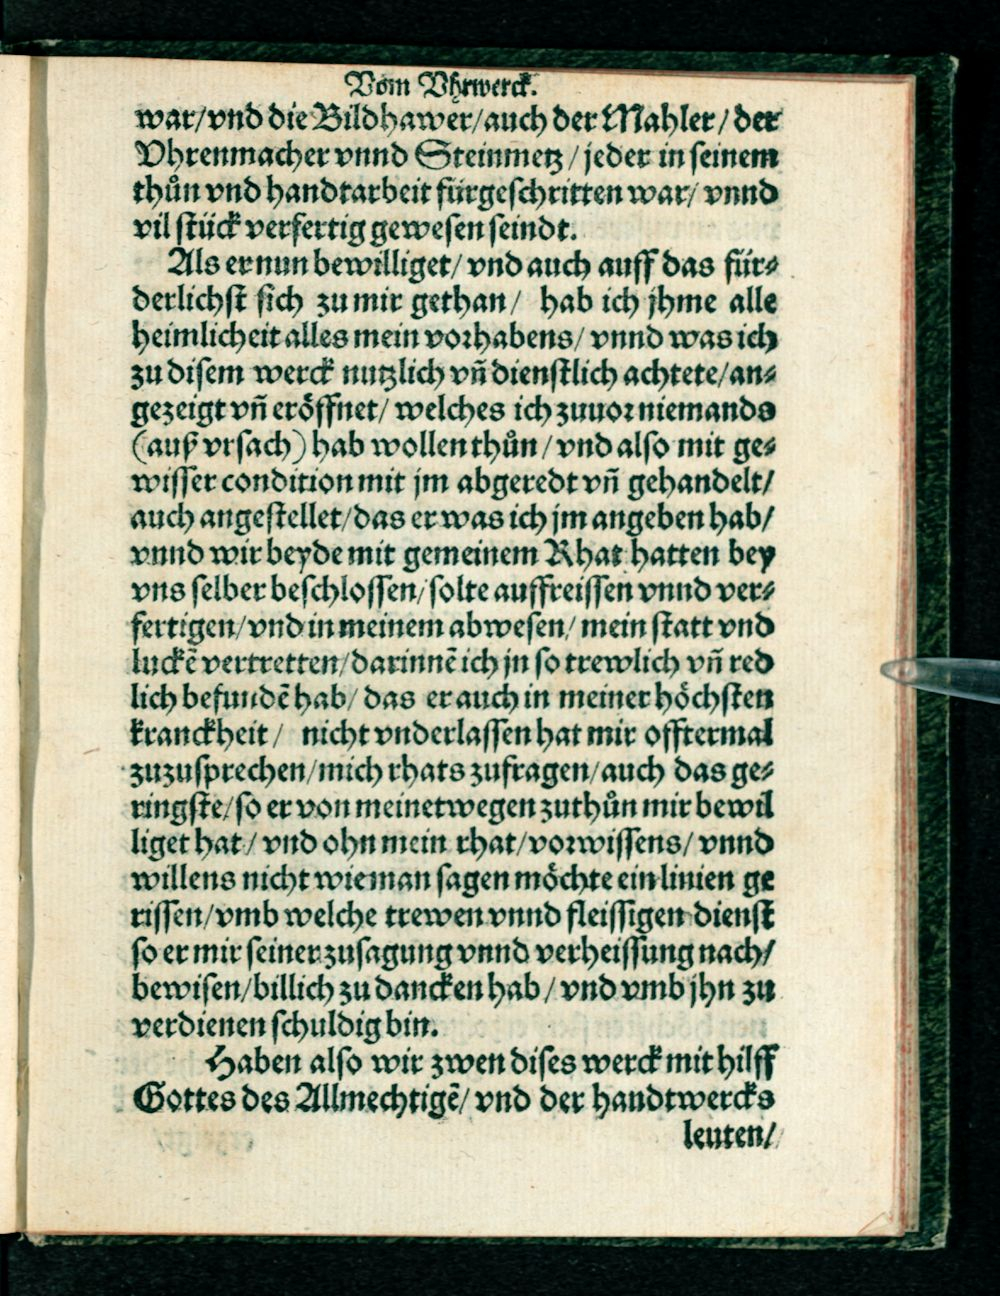 Vom Vhrwerck.
war/vnd die Bildhawer/auch der Mahler/der
Vhrenmacher vnnd Steinmetz/jeder in seinem
thůn vnd handtarbeit fürgeschritten war/vnnd
vil stück verfertig gewesen seindt.
Als er nun bewilliget/vnd auch auff das für⸗
derlichst sich zu mir gethan/ hab ich jhme alle
heimlicheit alles mein vorhabens/vnnd was ich
zu disem werck nutzlich vñ dienstlich achtete/an⸗
gezeigt vñ eröffnet/welches ich zuuor niemands
(auß vrsach) hab wollen thůn/vnd also mit ge⸗
wisser condition mit jm abgeredt vñ gehandelt/
auch angestellet/das er was ich jm angeben hab/
vnnd wir beyde mit gemeinem Rhat hatten bey
vns selber beschlossen/solte auffreissen vnnd ver⸗
fertigen/vnd in meinem abwesen/mein statt vnd
luckẽ vertretten/darinnẽ ich jn so trewlich vñ red
lich befundẽ hab/das er auch in meiner höchsten
kranckheit/ nicht vnderlassen hat mir offtermal
zuzusprechen/mich rhats zufragen/auch das ge⸗
ringste/so er von meinetwegen zuthůn mir bewil
liget hat/vnd ohn mein rhat/vorwissens/vnnd
willens nicht wie man sagen möchte ein linien ge
rissen/vmb welche trewen vnnd fleissigen dienst
so er mir seiner zusagung vnnd verheissung nach/
bewisen/billich zu dancken hab/vnd vmb jhn zu
verdienen schuldig bin.
Haben also wir zwen dises werck mit hilff
Gottes des Allmechtigẽ/vnd der handtwercks
leuten/